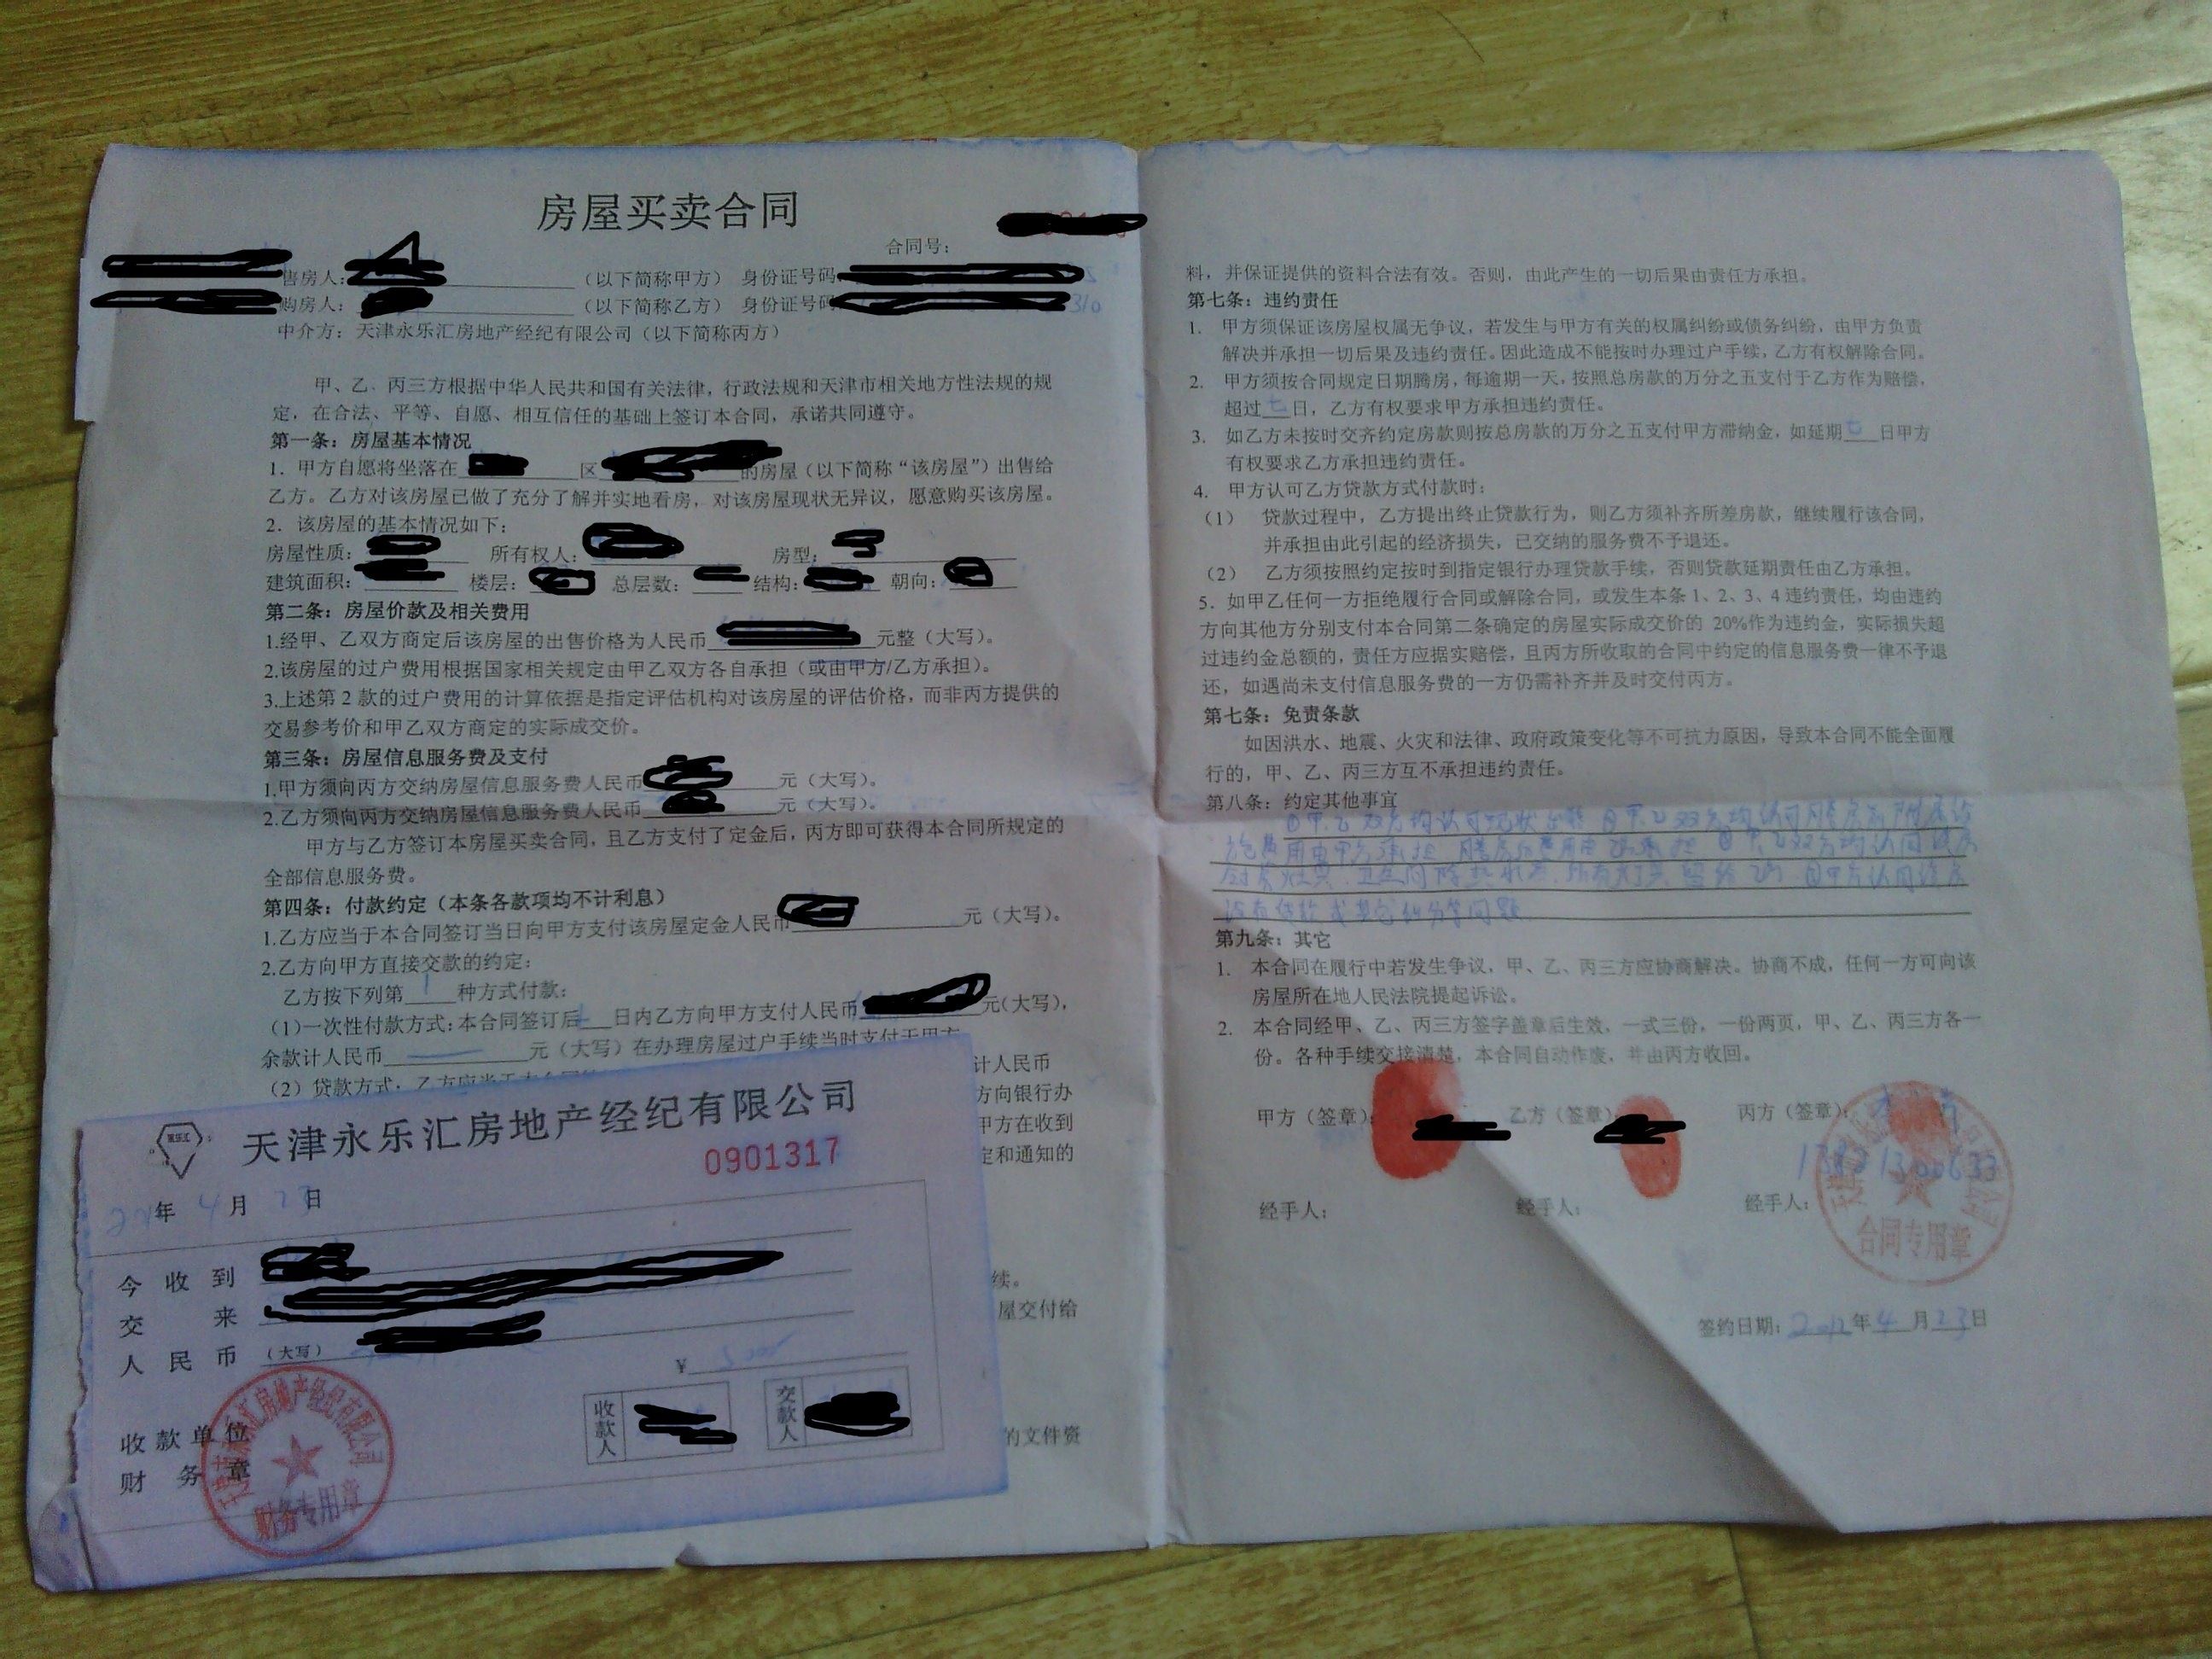 房屋买卖合同
合同号:
售房人: （以下简称甲方） 身份证号码
购房人: （以下简称乙方） 身份证号码 310
中介方: 天津永乐汇房地产经纪有限公司（以下简称丙方）
甲、乙、丙三方根据中华人民共和国有关法律，行政法规和天津市相关地方性法规的规
定，在合法、平等、自愿、相互信任的基础上签订本合同，承诺共同遵守。
第一条: 房屋基本情况
1. 甲方自愿将坐落在 区 的房屋（以下简称“该房屋”）出售给
乙方。乙方对该房屋已做了充分了解并实地看房，对该房屋现状无异议，愿意购买该房屋。
2. 该房屋的基本情况如下:
房屋性质: 所有权人: 房型:
建筑面积: 楼层: 总层数: 结构: 朝向:
第二条: 房屋价款及相关费用
1.经甲、乙双方商定后该房屋的出售价格为人民币 元整（大写）。
2.该房屋的过户费用根据国家相关规定由甲乙双方各自承担（或由甲方/乙方承担）。
3.上述第 2 款的过户费用的计算依据是指定评估机构对该房屋的评估价格，而非丙方提供的
交易参考价和甲乙双方商定的实际成交价。
第三条: 房屋信息服务费及支付
1.甲方须向丙方交纳房屋信息服务费人民币 元（大写）。
2.乙方须向丙方交纳房屋信息服务费人民币 元（大写）。
甲方与乙方签订本房屋买卖合同，且乙方支付了定金后，丙方即可获得本合同所规定的
全部信息服务费。
第四条: 付款约定（本条各款项均不计利息）
1.乙方应当于本合同签订当日向甲方支付该房屋定金人民币 元（大写）。
2.乙方向甲方直接交款的约定:
乙方按下列第 1 种方式付款:
(1)一次性付款方式: 本合同签订后 日内乙方向甲方支付人民币 元(大写),
余款计人民币 元（大写）在办理房屋过户手续当时支付于甲方
(2) 贷款方式: 计人民币
方向银行办
甲方在收到
定和通知的
续。
屋交付给
的文件资
天津永乐汇房地产经纪有限公司
0901317
年 4 月 23 日
今收到
交来
人民币 （大写） ¥
收款单位
财务章
收款人
交款人
天津永乐汇房地产经纪有限公司
财务专用章
料，并保证提供的资料合法有效。否则，由此产生的一切后果由责任方承担。
第七条: 违约责任
1. 甲方须保证该房屋权属无争议，若发生与甲方有关的权属纠纷或债务纠纷，由甲方负责
解决并承担一切后果及违约责任。因此造成不能按时办理过户手续，乙方有权解除合同。
2. 甲方须按合同规定日期腾房，每逾期一天，按照总房款的万分之五支付于乙方作为赔偿，
超过 七 日，乙方有权要求甲方承担违约责任。
3. 如乙方未按时交齐约定房款则按总房款的万分之五支付甲方滞纳金，如延期 七 日甲方
有权要求乙方承担违约责任。
4. 甲方认可乙方贷款方式付款时:
(1) 贷款过程中，乙方提出终止贷款行为，则乙方须补齐所差房款，继续履行该合同，
并承担由此引起的经济损失，已交纳的服务费不予退还。
(2) 乙方须按照约定按时到指定银行办理贷款手续，否则贷款延期责任由乙方承担。
5. 如甲乙任何一方拒绝履行合同或解除合同，或发生本条 1、2、3、4 违约责任，均由违约
方向其他方分别支付本合同第二条确定的房屋实际成交价的 20%作为违约金，实际损失超
过违约金总额的，责任方应据实赔偿，且丙方所收取的合同中约定的信息服务费一律不予退
还，如遇尚未支付信息服务费的一方仍需补齐并及时交付丙方。
第七条: 免责条款
如因洪水、地震、火灾和法律、政府政策变化等不可抗力原因，导致本合同不能全面履
行的，甲、乙、丙三方互不承担违约责任。
第八条: 约定其他事宜
①甲、乙双方均认可现状 ②甲乙双方均认可腾房前
费用由甲方承担 腾房后费用由乙方承担 ③甲、乙双方均认同该房
卫生间 热水器 所有灯具 留给乙方 ④甲方认同该房
没有贷款或其它纠纷等问题
第九条: 其它
1. 本合同在履行中若发生争议，甲、乙、丙三方应协商解决。协商不成，任何一方可向该
房屋所在地人民法院提起诉讼。
2. 本合同经甲、乙、丙三方签字盖章后生效，一式三份，一份两页，甲、乙、丙三方各一
份。各种手续交接清楚，本合同自动作废，并由丙方收回。
甲方（签章）: 乙方（签章） 丙方（签章）:
经手人: 经手人: 经手人:
合同专用章
签约日期: 2012 年 4 月 23 日